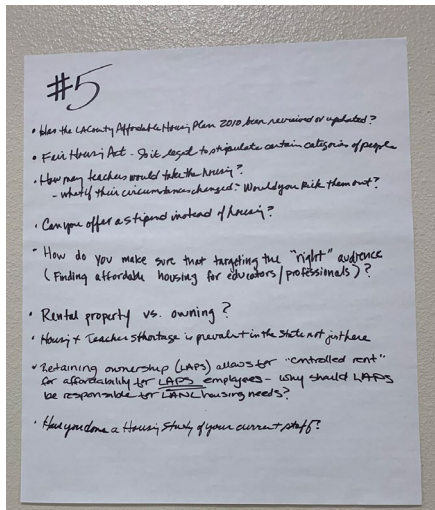 #5
• Has the LA County Affordable Housing Plan 2010 been reviewed or updated?
• Fair Housing Act - Is it legal to stipulate certain categories of people
• How many teachers would take the housing?
- what if their circumstances changed? Would you kick them out?
• Can you offer a stipend instead of housing?
• How do you make sure that targeting the "right" audience
(Finding affordable housing for educators/professionals)?
• Rental property vs. owning?
• Housing & Teacher shortage is prevalent in the state not just here
• Retaining ownership (LAPS) allows for "controlled rent"
for affordability for LAPS employees - why should LAPS
be responsible for LANL housing needs?
• Have you done a Housing Study of your current staff?